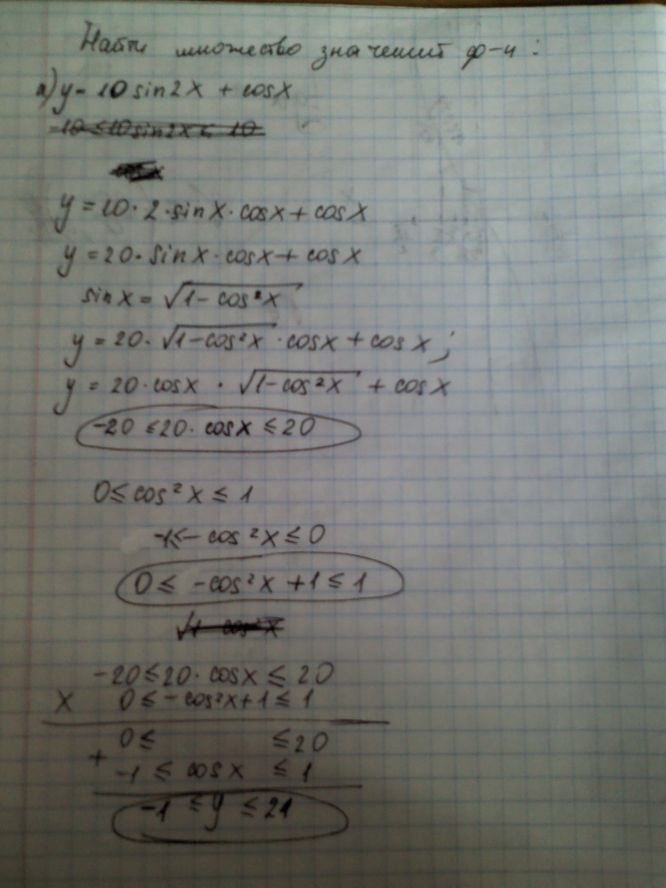 Найти множество значений ф-и:
а) y = 10 sin2x + cosx
-10 ≤ 10 sin2x ≤ 10
y = 10 · 2 · sinx · cosx + cosx
y = 20 · sinx · cosx + cosx
sinx = √(1 - cos²x)
y = 20 · √(1 - cos²x) · cosx + cosx;
y = 20 · cosx · √(1 - cos²x) + cosx
-20 ≤ 20 · cosx ≤ 20
0 ≤ cos²x ≤ 1
-1 ≤ -cos²x ≤ 0
0 ≤ -cos²x + 1 ≤ 1
√(1 - cos²x)
-20 ≤ 20 · cosx ≤ 20
x 0 ≤ -cos²x + 1 ≤ 1
0 ≤ ≤ 20
+ -1 ≤ cosx ≤ 1
-1 ≤ y ≤ 21